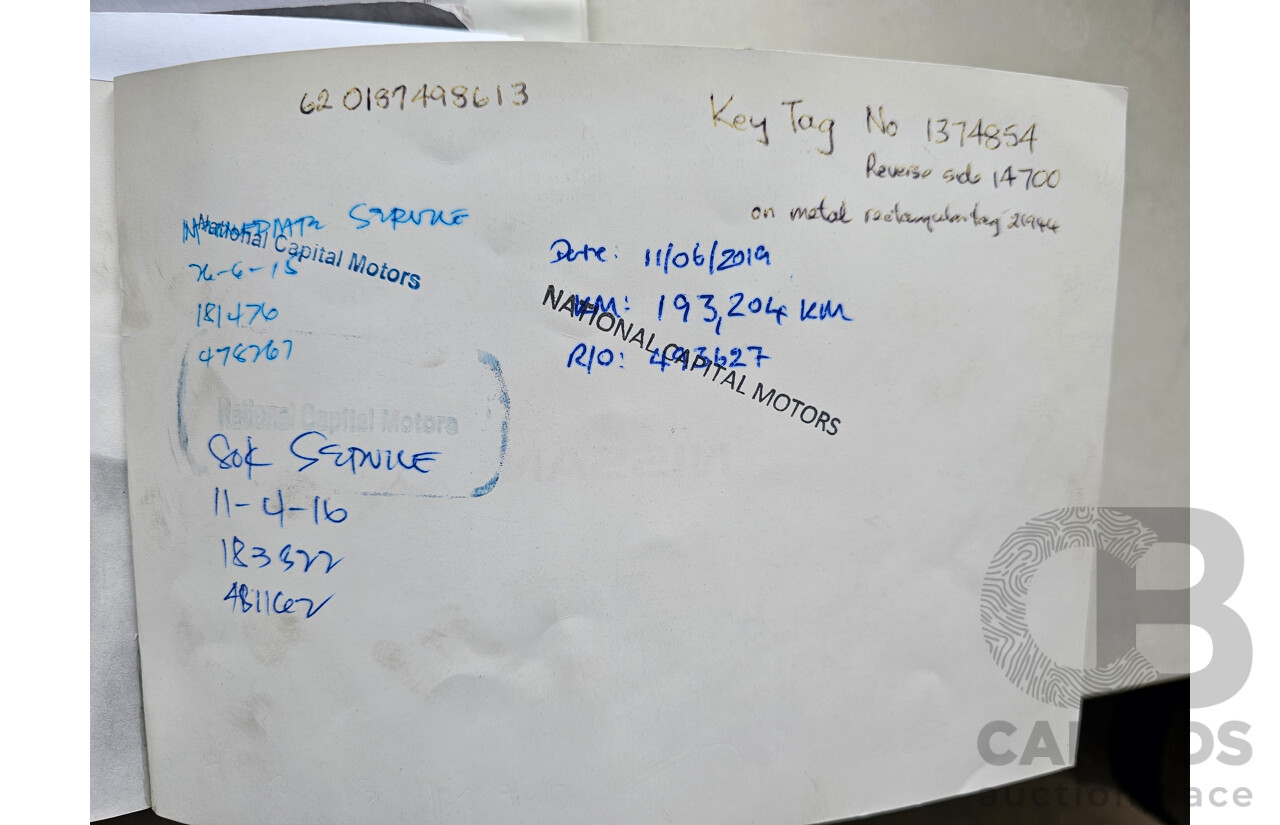 62 0187498613
Key Tag No 1374854
Reverse side 14700
on metal rectangular tag
INTERMEDIATE SERVICE
National Capital Motors
26-6-15
181476
478267
National Capital Motors
80K SERVICE
11-4-16
183822
481162
Date: 11/06/2019
KM: 193,204 KM
R/O: 493627
NATIONAL CAPITAL MOTORS
NISSAN
CB
auction